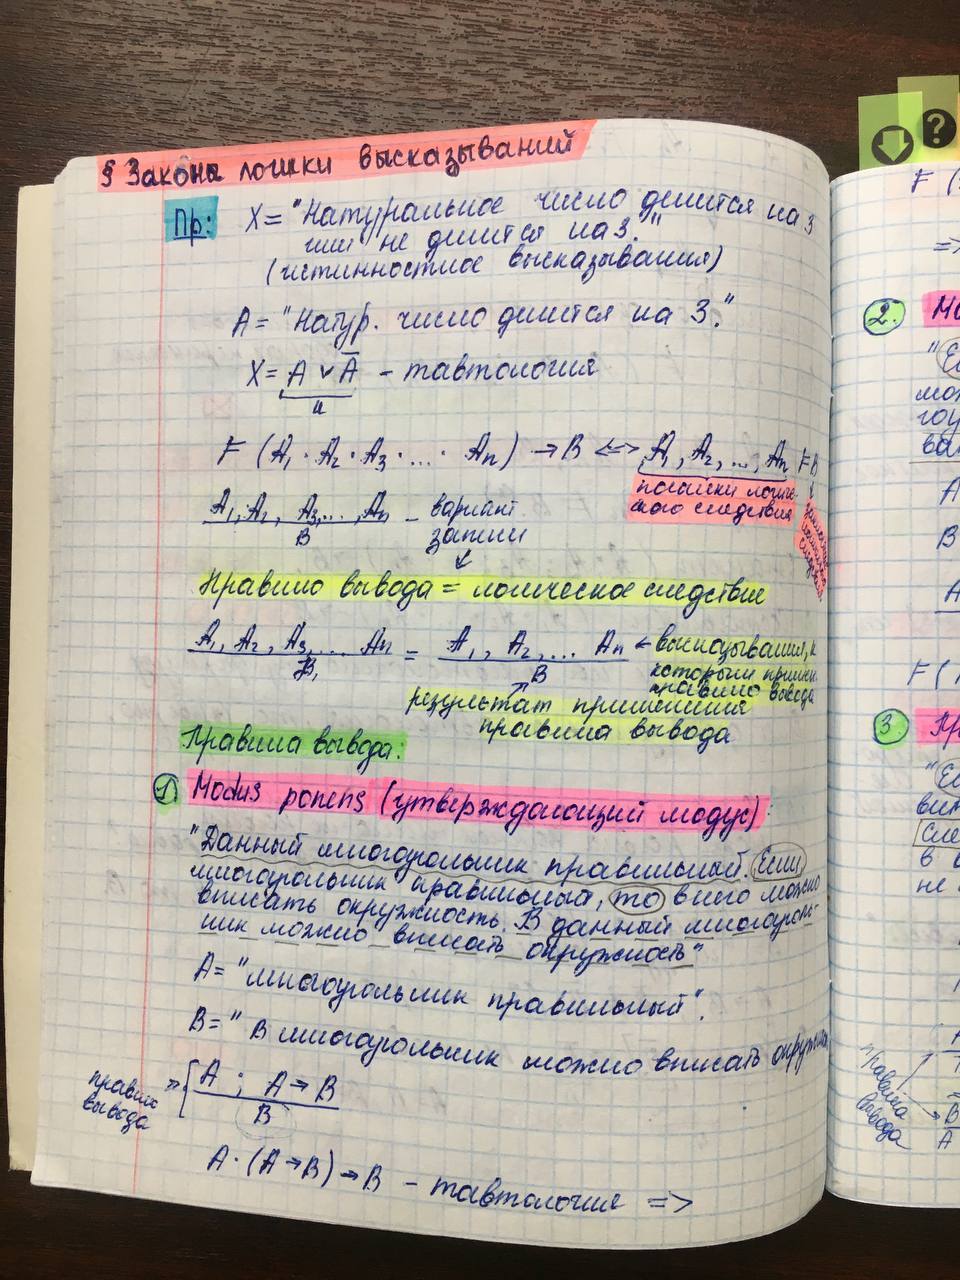 § Законы логики высказываний
Пр: X= "Натуральное число делится на 3
или не делится на 3."
(истинностное высказывания)
A= "Натур. число делится на 3."
X= A ∨ A̅ – тавтология
и
⊨ (A₁ · A₂ · A₃ · ... · Aₙ) → B <=> A₁, A₂, ..., Aₙ ⊨ B
посылки логиче-
ского следствия
A₁, A₂, A₃, ..., Aₙ – вариант
B записи
Правило вывода = логическое следствие
A₁, A₂, A₃, ... Aₙ = A₁, A₂, ... Aₙ ← высказывания, к
B₁ B которым примен.
правило вывода
результат применения
правила вывода
Правила вывода:
1. Modus ponens (утверждающий модус):
"Данный многоугольник правильный. Если
многоугольник правильный, то в него можно
вписать окружность. В данный многоуголь-
ник можно вписать окружность"
A= "многоугольник правильный".
B= "В многоугольник можно вписать окружн.
правило
вывода
A ; A → B
B
A · (A → B) → B – тавтология =>
F (
=>
2. Mo
"Е
мож
гоу
ван
A
B
A
F (
3. Пр
"Е
вит
сле
в
не
правила
вывода
B̅
A̅